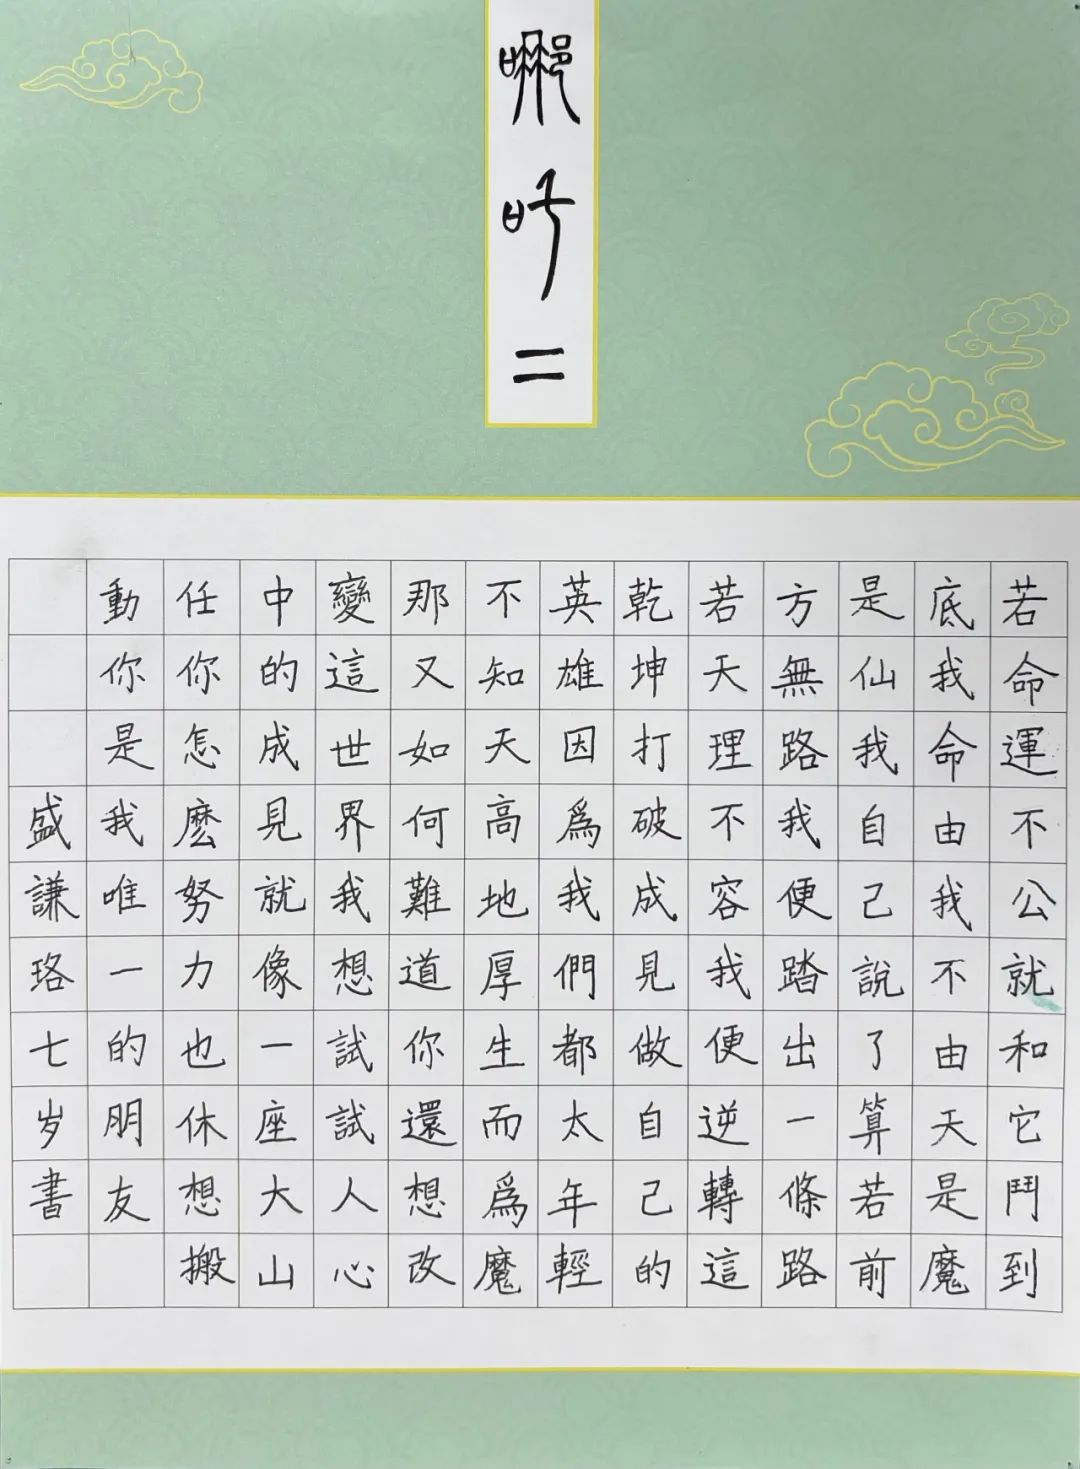 哪吒二
若命運不公就和它鬥到
底我命由我不由天是魔
是仙我自己說了算若前
方無路我便踏出一條路
若天理不容我便逆轉這
乾坤打破成見做自己的
英雄因爲我們都太年輕
不知天高地厚生而爲魔
那又如何難道你還想改
變這世界我想試試人心
中的成見就像一座大山
任你怎麽努力也休想搬
動你是我唯一的朋友
盛謙珞七岁書